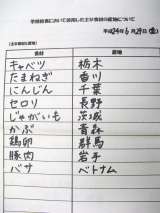 学校給食において使用した主な食材の産地について
平成24年6月29日(金)
食材 産地
キャベツ 栃木
たまねぎ 香川
にんじん 千葉
セロリ 長野
じゃがいも 茨城
かぶ 青森
鶏卵 群馬
豚肉 岩手
バサ ベトナム